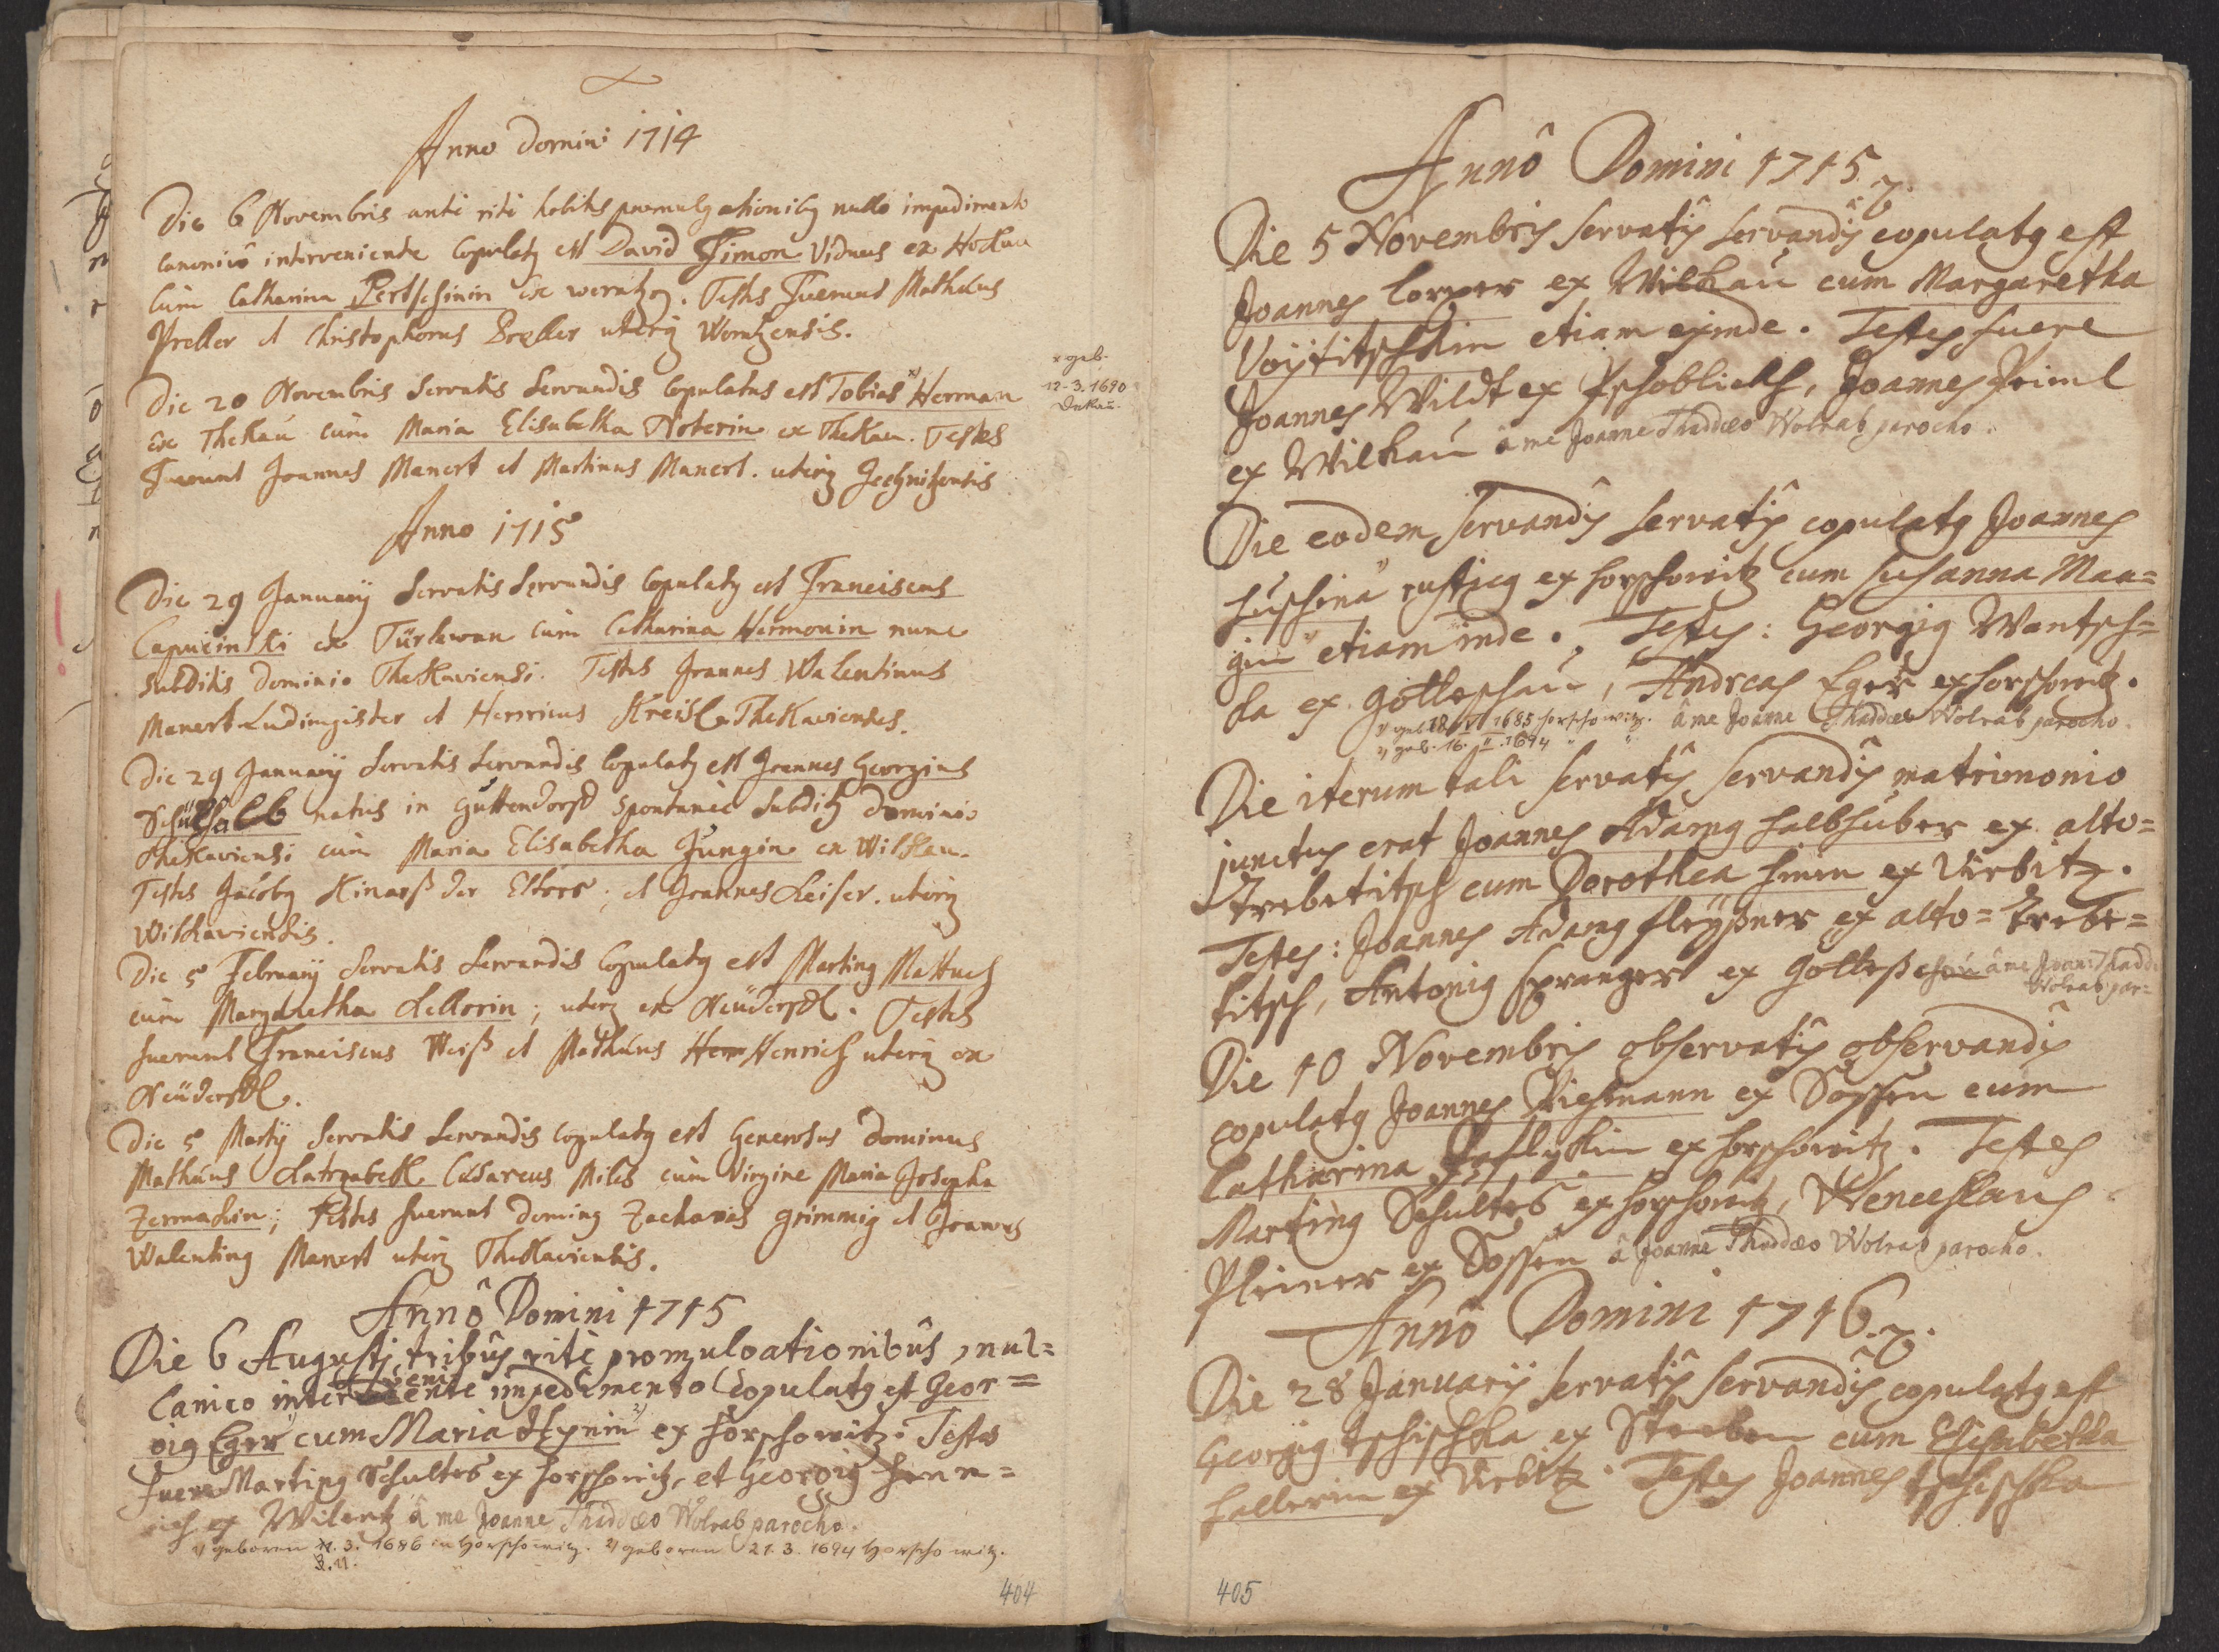 Anno Domini 1714
Die 6 Novembris ante rite habitis promulgationiby nullo impedimento
canonico interveniente Copulaty est David Simon Viduus ex Hockau
cum Catharina Pertschinin ex weratzen. Testes Fuerunt Matheus
Preller et Christophorus Preller uterq Weratzensis.
Die 20 Novembris Servatis Servandis Copulatus est Tobias x) Herman
x geb.
12-3.1690
Dekau.
ex Thekau cum Maria Elisabetha Noterin ex Thekau. Testes
Fuerunt Joannes Manert et Martinus Manert. uterq Jechnitzensis
Anno 1715
Die 29 Januarij Servatis Servandis Copulaty est Franciscus
Capucinski ex Türlewan cum Catharina Hermonin nunc
subditis dominio Thekaviensi. Testes Joannes Walentinus
Manert Ludimagister et Henricus Kreisl Thekavienses.
Die 29 Januarij Servatis Servandis Copulaty est Joannes Georgius
natus in Guttendorff spontanee subdity dominio
Thekaviensi cum Maria Elisabetha Jungin ex Wilkau.
Testes Jacoby Kinarß der Elters; et Joannes Leiser. uterq
Wilkaviensis.
Die 5 February Servatis Servandis Copulaty est Marting Mattuch
cum Margaretha Kellorin; uterq ex Neüdorffl. Testes
fuerunt Franciscus Weiß et Matheus Henrich uterq ex
Neüdorffl.
Die 5 Martij Servatis Servandis copulaty est Generosus Dominus
Matheus Latrzabekl Cæsareus Miles cum Virgine Maria Josepha
Zermakin; Testes fuerunt Doming Zacharias Grimmig et Joannes
Walenting Manert uterq Thekaviensis.
Annô Domini 1715
Die 6 Augusti, tribus rite promulgationibûs, nul=
Canico interveniente impedimento Copulaty est Geor=
gig Eger 1) cum Maria 2) ex Horschowitz. Testes
fuere Marting Schultes ex Horschowitz, et Georgig Henn=
rich ex Wilentz â me Joanne Thaddæo Wolrab parocho.
1) geboren 11. 3. 1686 in Horschowitz. 2) geboren 21. 3. 1694 Horschowitz.
3.11.
404
Annô Domini 1715.
Die 5 Novembris servatis servandis copulatg est
Joannes Corper ex Wilkau cum Margaretha
Voÿtitschkin etiam exinde. Testes fuere
Joannes Wildt ex Pschoblickh, Joannes Priml
ex Wilkau â me Joanne Thaddæo Wolrab parocho.
Die eodem servandis servatis copulatg Joannes
Huschina 1) rusticg ex Horschowitz cum Susanna Maa=
gin 2) etiam inde. Testes: Georgig Wantsch=
ka ex Gotteschau, Andreas Eger ex Horschowitz.
1) geb. 1685 Horschowitz. â me Joanne Thaddæo Wolrab parocho.
2) geb. 16. II. 1694 " "
Die iterum tali servatis servandis matrimonio
junctus erat Joannes Adamg Halbhuber ex alto=
Trebetitsch cum Dorothea Hinin ex Wirbitz.
Testes: Joannes Adamg fleyßner ex alto=Trebe=
titsch, Antonig Spranger ex Gotteßchau â me Joan: Thadd:
Wolrab par=
Die 10 Novembris observatis observandis
copulatg Joannes Diesmann ex Sossen cum
Catharina ex Horschowitz. Testes
Marting Schultes ex Horschowitz, Wenceslaus
Pleiner ex Sossen â Joanne Thaddæo Wolrab parocho.
Annô Domini 1716.
Die 28 Januarij servatis servandis copulatg est
Georgig Tschischka ex Streben cum Elisabetha
Hallerin ex Wirbitz. Testes Joannes Tschischka
405